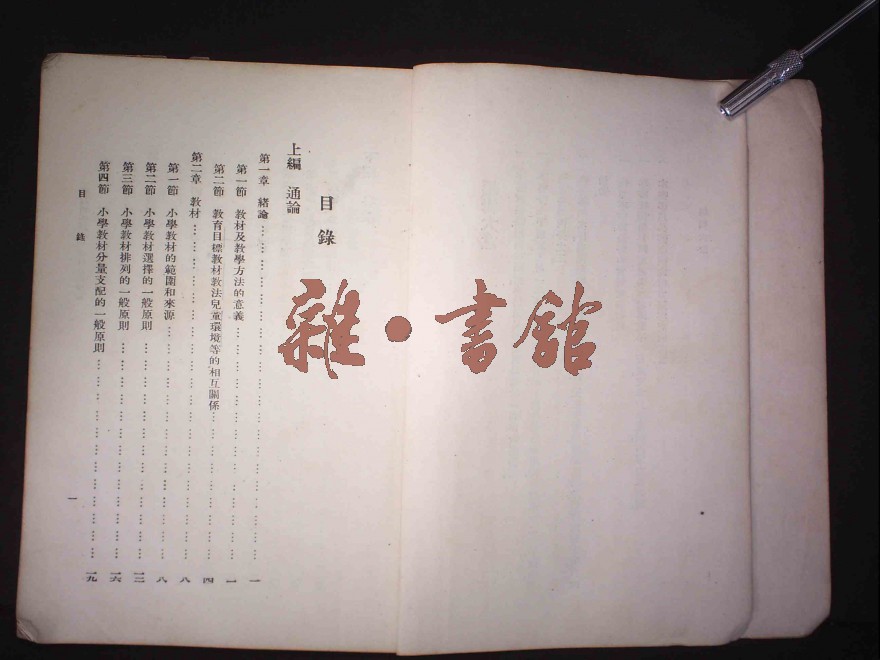 目錄
上編 通論
第一章 緒論……一
第一節 教材及教學方法的意義……一
第二節 教育目標教材教法兒童環境等的相互關係……四
第二章 教材……八
第一節 小學教材的範圍和來源……八
第二節 小學教材選擇的一般原則……一三
第三節 小學教材排列的一般原則……一六
第四節 小學教材分量支配的一般原則……一九
目錄
一
雜•書館